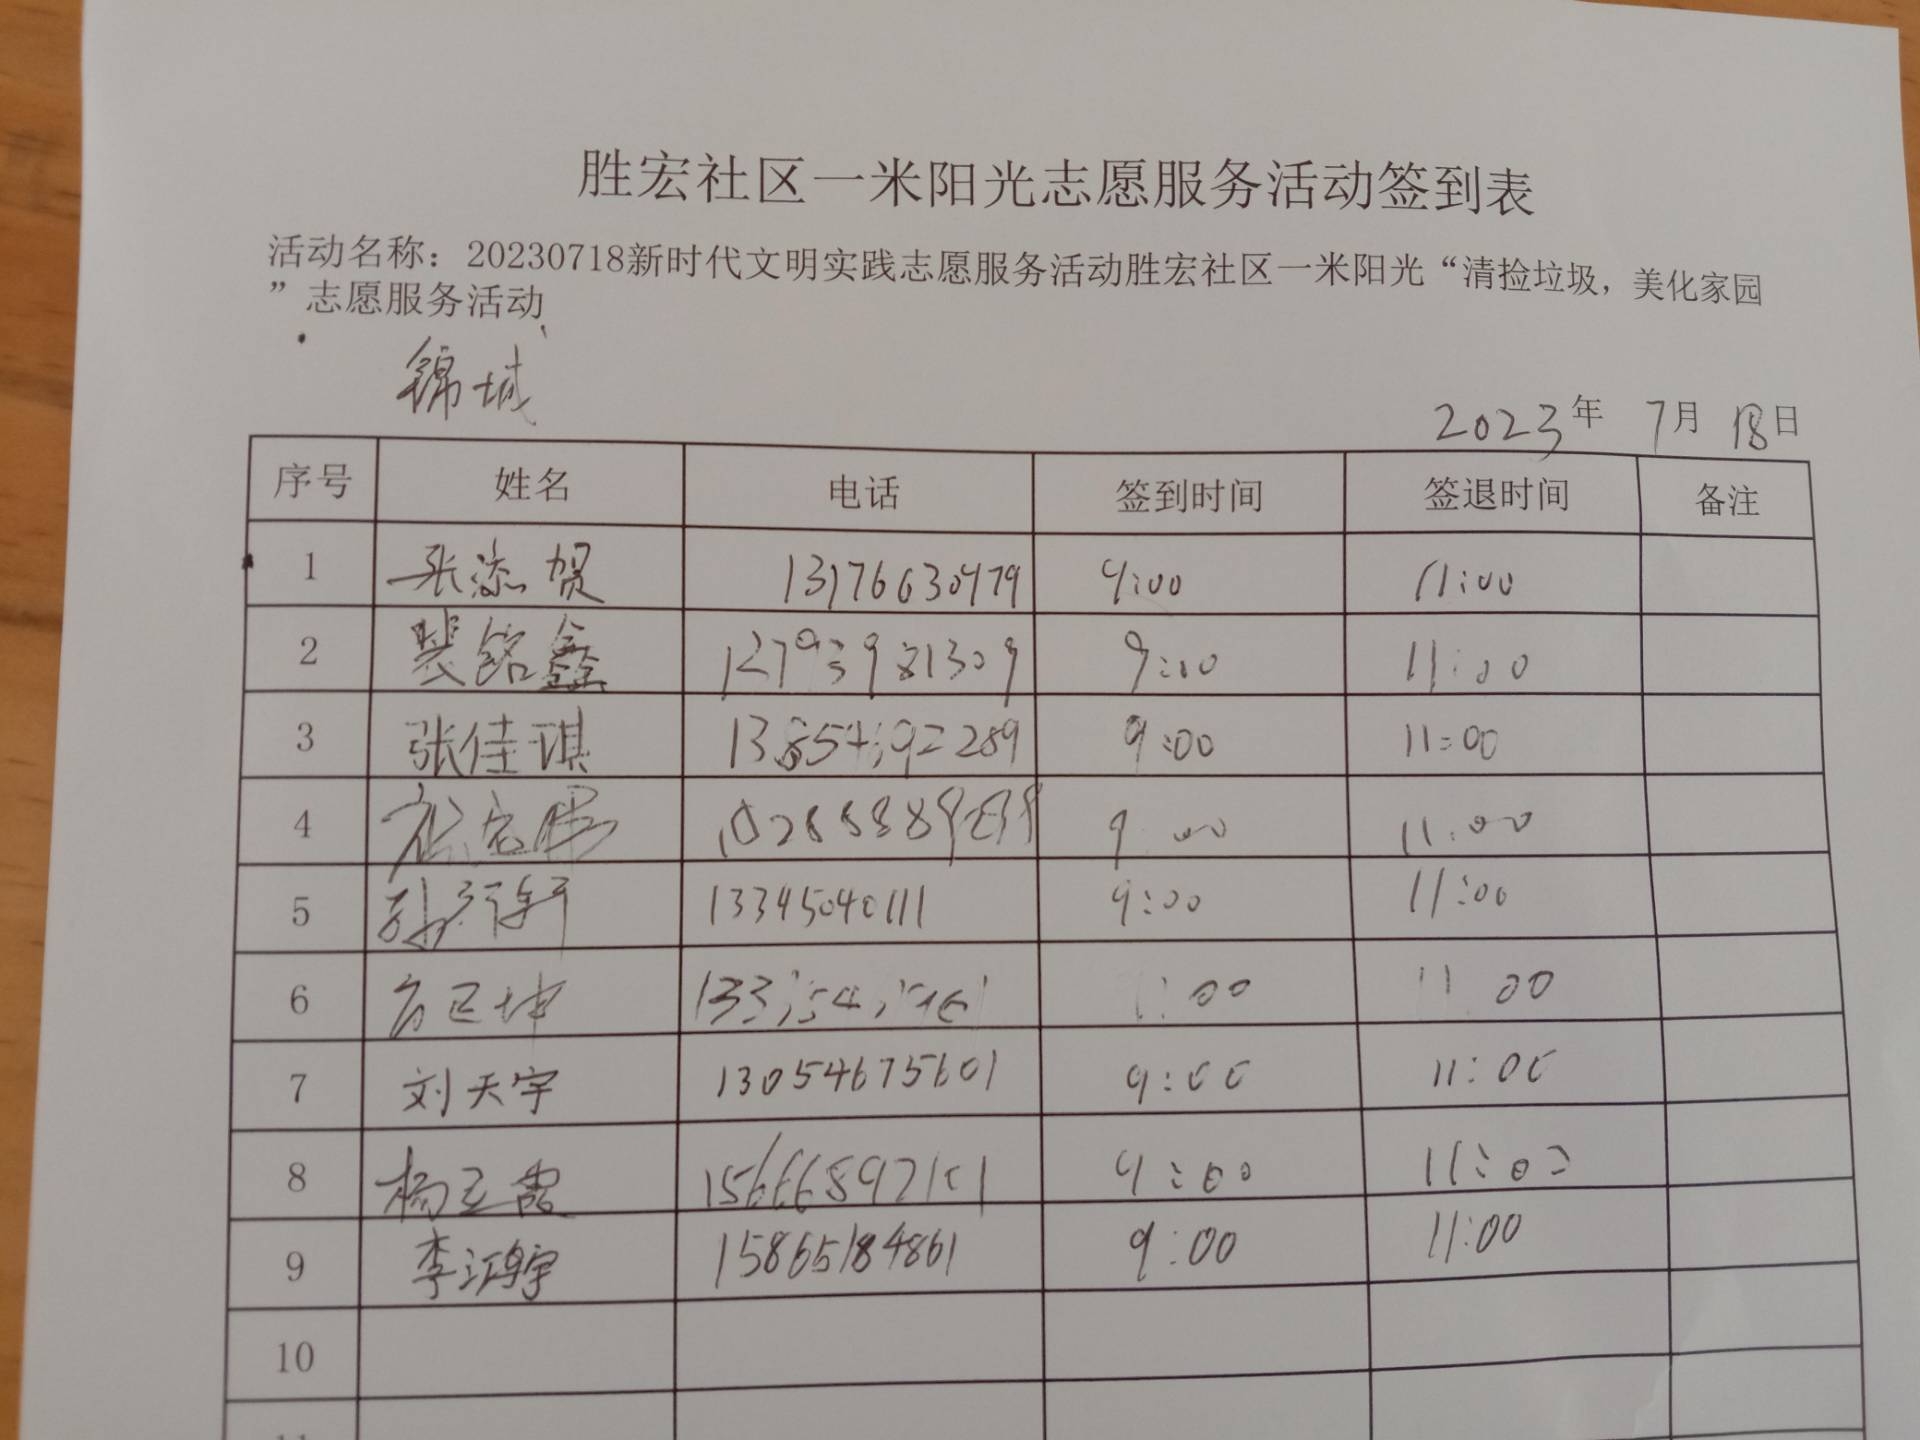 胜宏社区一米阳光志愿服务活动签到表
活动名称：20230718新时代文明实践志愿服务活动胜宏社区一米阳光“清捡垃圾，美化家园
”志愿服务活动
锦城
2023年 7月 18日
序号 姓名 电话 签到时间 签退时间 备注
1 张添贺 13176630479 9:00 11:00
2 裴铭鑫 9:00 11:00
3 张佳琪 9:00 11:00
4 9:00 11:00
5 13345040111 9:00 11:00
6 :00 11 00
7 刘天宇 13054675601 9:00 11:00
8 杨 霞 9:00 11:00
9 李 宇 15865184861 9:00 11:00
10